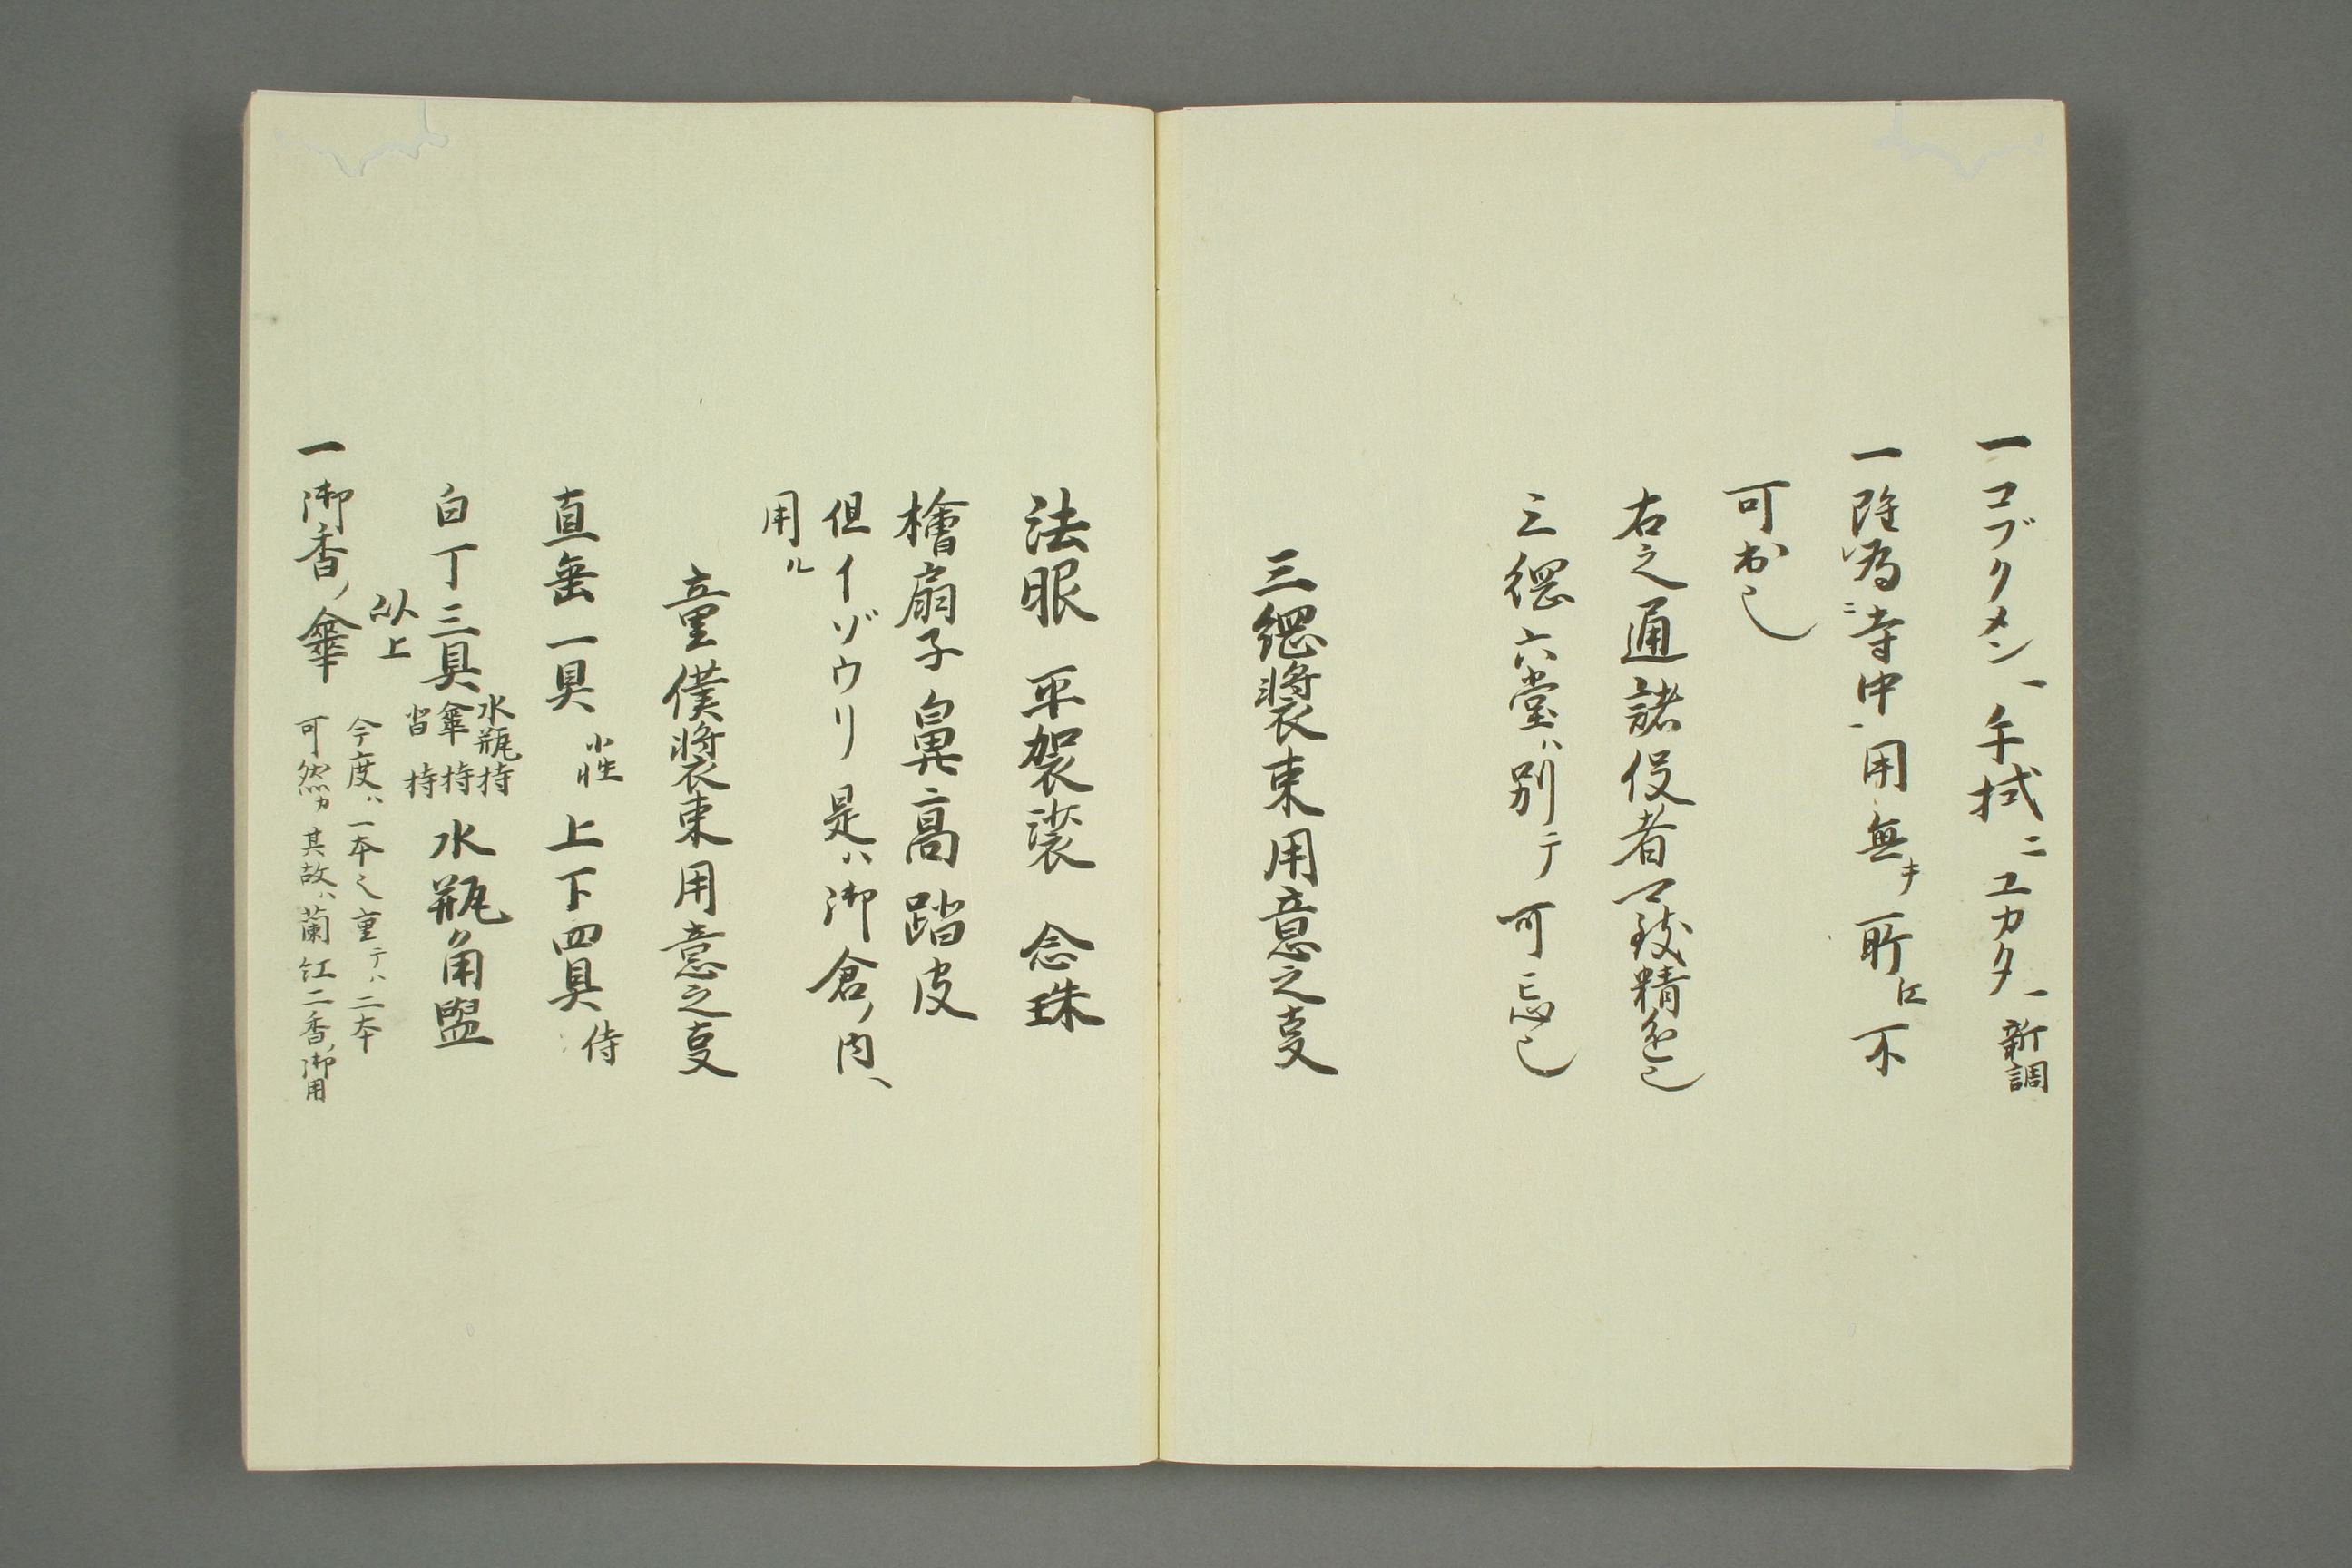 一コブクメン一手拭ニユカタ一新調
一雖為ニ寺中一用無キ所江不
可出也
右之通諸役者可致精進也
三綱六堂ハ別テ可忌也
三綱裝束用意之叓
法眼 平袈裟 念珠
檜扇子 鼻高 踏皮
但イゾウリ是ハ御倉ノ内ハ
用ル
童僕裝束用意之叓
直垂一具 小性 上下四具 侍
白丁三具 水瓶持 傘持 沓持 水瓶角盥
以上
一御香ノ傘 今度ハ一本也重テハ二本
可然カ其故ハ蘭紅二香御用